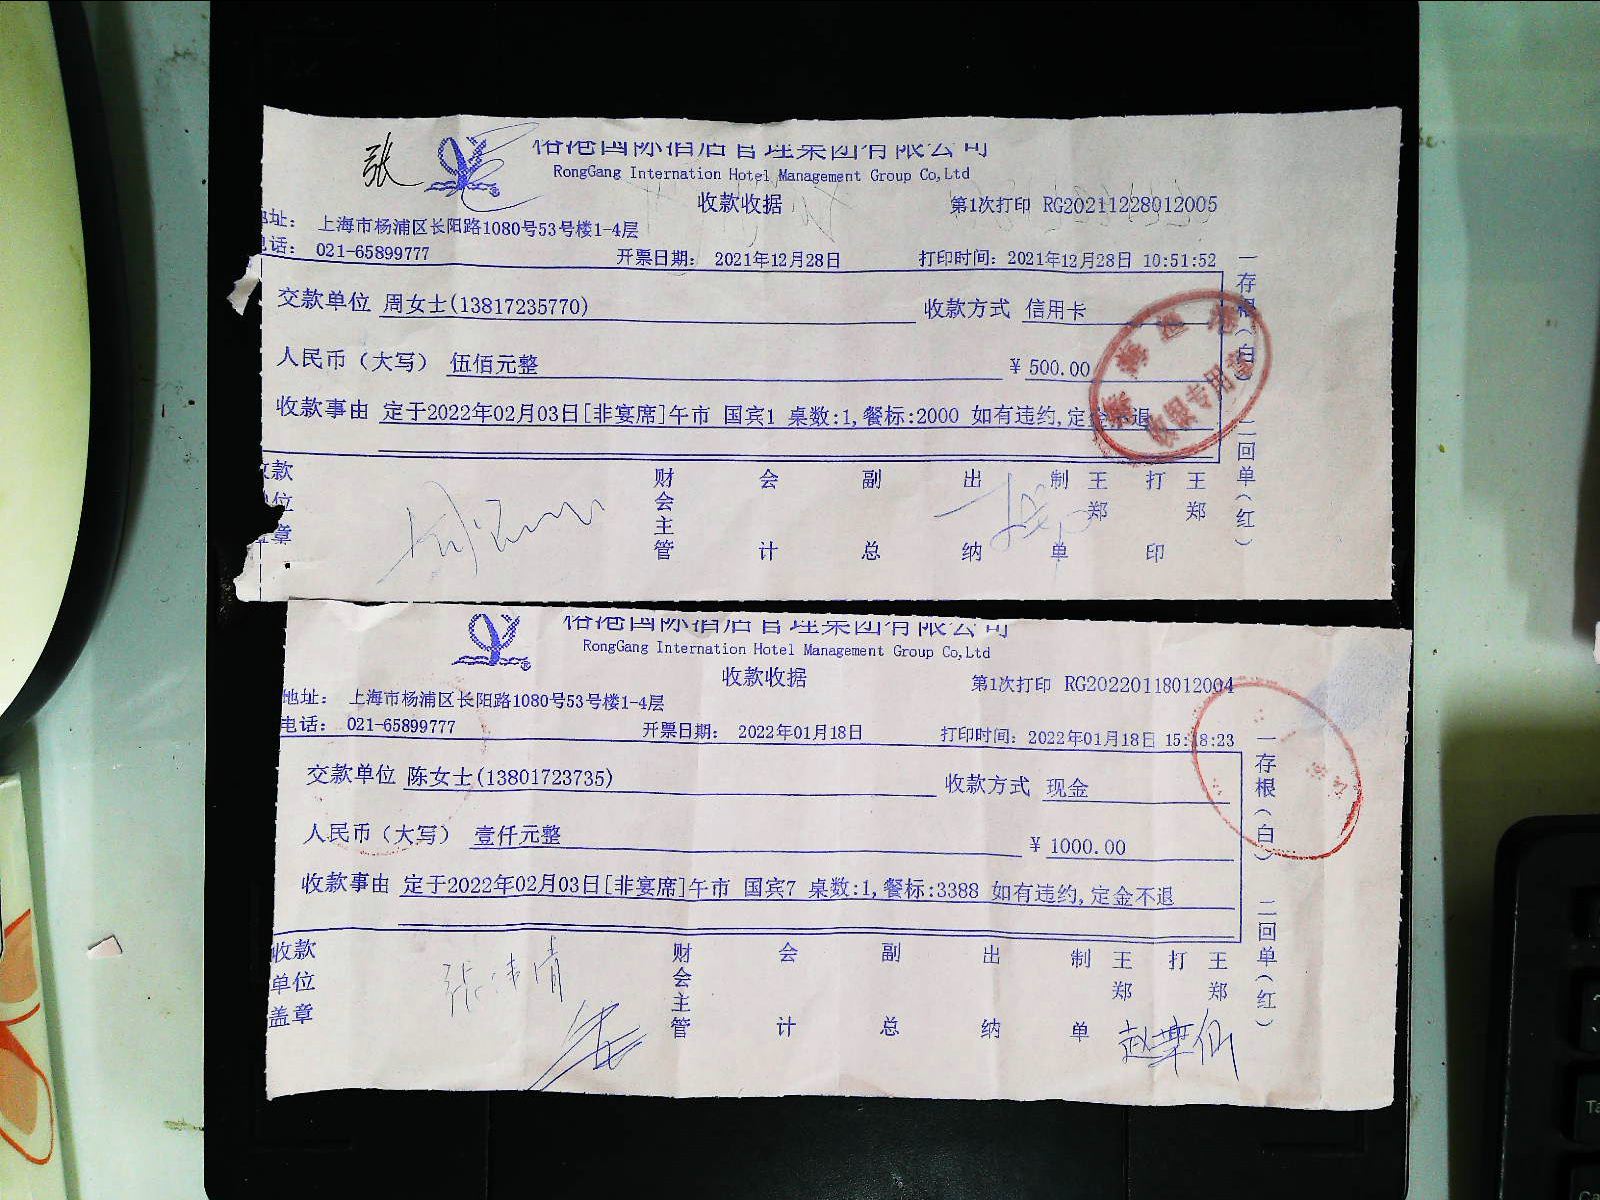 张
裕港国际酒店管理集团有限公司
RongGang Internation Hotel Management Group Co,Ltd
收款收据 第1次打印 RG20211228012005
地址： 上海市杨浦区长阳路1080号53号楼1-4层
电话： 021-65899777 开票日期： 2021年12月28日 打印时间：2021年12月28日 10:51:52
交款单位 周女士(13817235770) 收款方式 信用卡
人民币（大写） 伍佰元整 ￥500.00
收款事由 定于2022年02月03日[非宴席]午市 国宾1 桌数:1,餐标:2000 如有违约,定金不退
收款单位盖章 财会主管 会计 副总 出纳 制单 王郑 打印 王郑
一存根（白） 二回单（红）
收银专用章
裕港国际酒店管理集团有限公司
RongGang Internation Hotel Management Group Co,Ltd
收款收据 第1次打印 RG20220118012004
地址： 上海市杨浦区长阳路1080号53号楼1-4层
电话： 021-65899777 开票日期： 2022年01月18日 打印时间：2022年01月18日 15:18:23
交款单位 陈女士(13801723735) 收款方式 现金
人民币（大写） 壹仟元整 ￥1000.00
收款事由 定于2022年02月03日[非宴席]午市 国宾7 桌数:1,餐标:3388 如有违约,定金不退
收款单位盖章 财会主管 会计 副总 出纳 制单 王郑 打 王郑
一存根（白） 二回单（红）